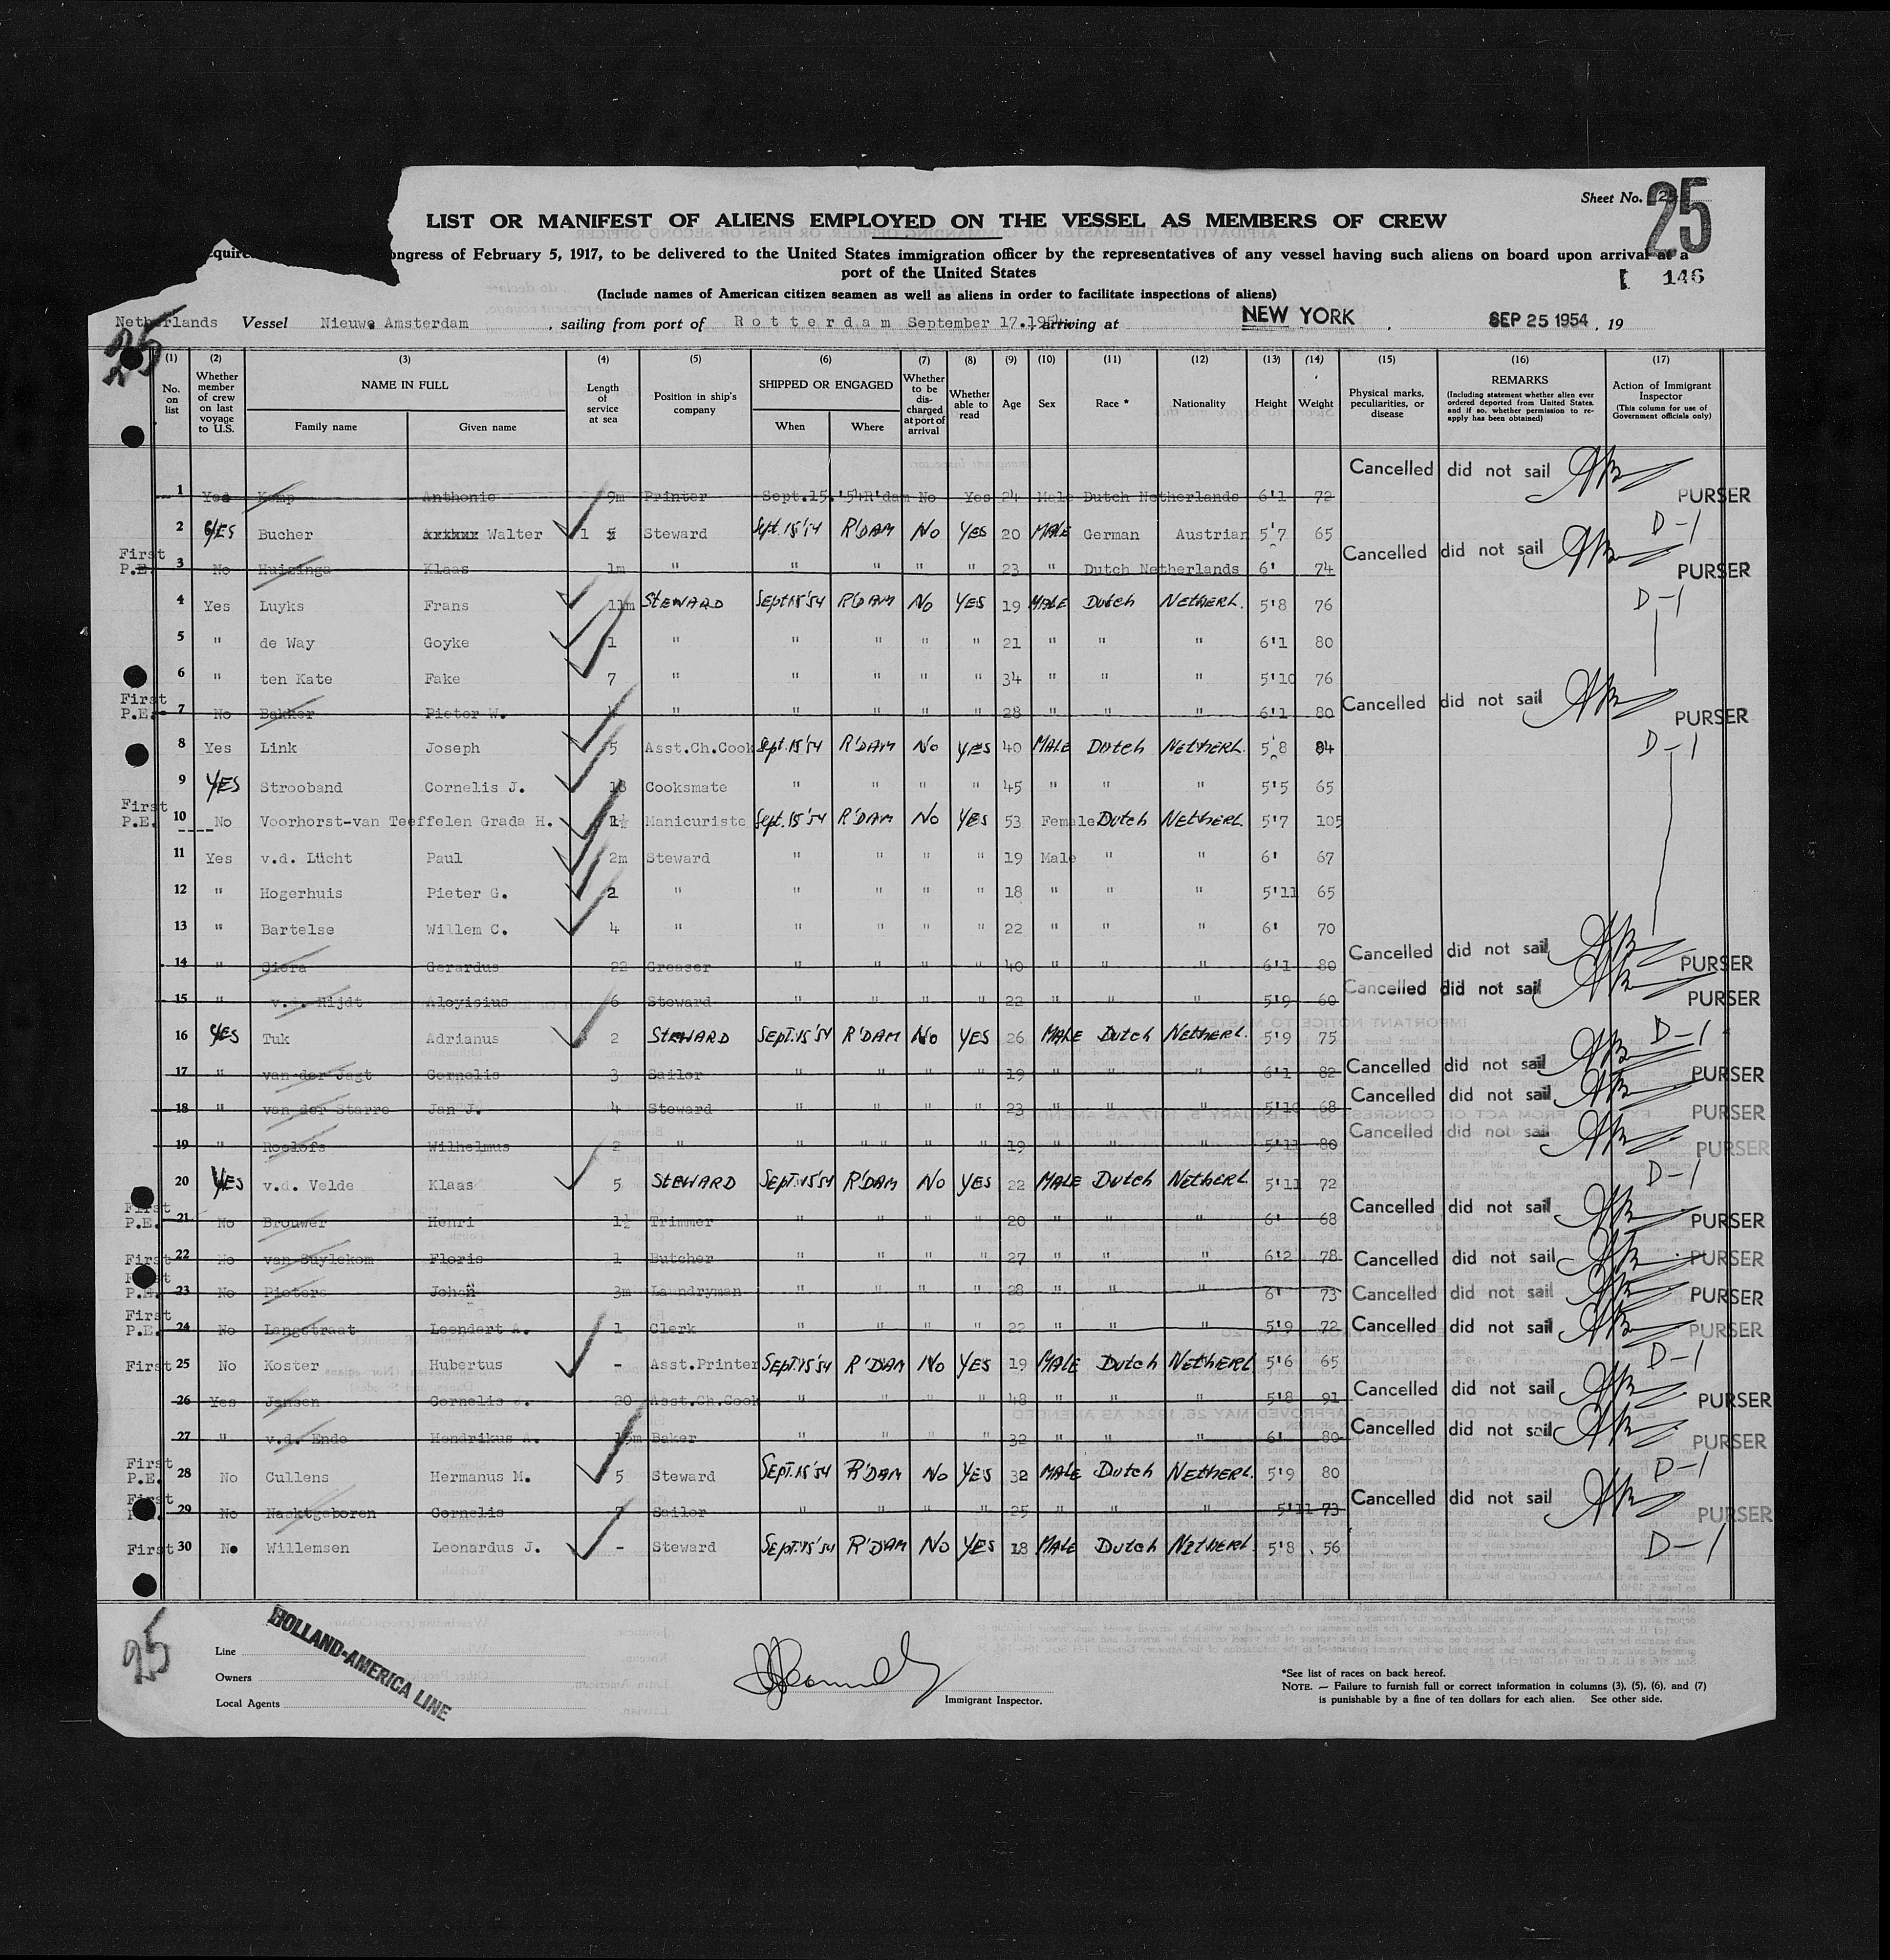 Sheet No. 25
25
LIST OR MANIFEST OF ALIENS EMPLOYED ON THE VESSEL AS MEMBERS OF CREW
ongress of February 5, 1917, to be delivered to the United States immigration officer by the representatives of any vessel having such aliens on board upon arrival at a
port of the United States
146
(Include names of American citizen seamen as well as aliens in order to facilitate inspections of aliens)
Netherlands Vessel Nieuwe Amsterdam , sailing from port of Rotterdam September 17.1954 arriving at NEW YORK , SEP 25 1954 , 19
25
(1) (2) (3) (4) (5) (6) (7) (8) (9) (10) (11) (12) (13) (14) (15) (16) (17)
No. on list
Whether member of crew on last voyage to U.S.
NAME IN FULL
Family name Given name
Length of service at sea
Position in ship's company
SHIPPED OR ENGAGED
When Where
Whether to be discharged at port of arrival
Whether able to read
Age Sex Race * Nationality Height Weight
Physical marks, peculiarities, or disease
REMARKS
(Including statement whether alien ever ordered deported from United States, and if so, whether permission to re-apply has been obtained)
Action of Immigrant Inspector
(This column for use of Government officials only)
Cancelled did not sail PURSER
1 Yes Kamp Anthonie 9m Printer Sept.15.'54 R'dam No Yes 24 Male Dutch Netherlands 6'1 72
2 YES Bucher Walter 1 Steward Sept. 15'54 R'DAM No YES 20 MALE German Austrian 5'7 65 D-1
Cancelled did not sail PURSER
First P.E. 3 No Huizinga Klaas 1m " " " " " 23 " Dutch Netherlands 6' 74
4 Yes Luyks Frans 11m STEWARD Sept 15'54 R'DAM No YES 19 MALE Dutch NetherL. 5'8 76 D-1
5 " de Way Goyke 1 " " " " " 21 " " " 6'1 80
6 " ten Kate Fake 7 " " " " " 34 " " " 5'10 76
Cancelled did not sail PURSER
First P.E. 7 No Bakker Pieter W. " " " " " 28 " " " 6'1 80
8 Yes Link Joseph 5 Asst.Ch.Cook Sept. 15'54 R'DAM No YES 40 MALE Dutch NetherL. 5'8 84 D-1
9 YES Strooband Cornelis J. 18 Cooksmate " " " " 45 " " " 5'5 65
First P.E. 10 No Voorhorst-van Teeffelen Grada H. 1½ Manicuriste Sept. 15'54 R'DAM No YES 53 Female Dutch NetherL. 5'7 105
11 Yes v.d. Lücht Paul 2m Steward " " " " 19 Male " " 6' 67
12 " Hogerhuis Pieter G. 2 " " " " " 18 " " " 5'11 65
13 " Bartelse Willem C. 4 " " " " " 22 " " " 6' 70
Cancelled did not sail PURSER
14 " Siera Gerardus 22 Greaser " " " " 40 " " " 6'1 80
Cancelled did not sail PURSER
15 " v.d. Rijdt Aloyisius 6 Steward " " " " 22 " " " 5'9 60
16 YES Tuk Adrianus 2 STEWARD SEPT. 15'54 R'DAM No YES 26 MALE Dutch NetherL. 5'9 75 D-1
Cancelled did not sail PURSER
17 " van der Jagt Cornelis 3 Sailor " " " " 19 " " " 6'1 82
Cancelled did not sail PURSER
18 " van der Starre Jan J. 4 Steward " " " " 23 " " " 5'10 68
Cancelled did not sail PURSER
19 " Roelofs Wilhelmus 2 " " " " " " 19 " " " 5'11 80
20 YES v.d. Velde Klaas 5 STEWARD SEPT. 15'54 R'DAM No YES 22 MALE Dutch NetherL 5'11 72 D-1
Cancelled did not sail PURSER
First P.E. 21 No Brouwer Henri 1½ Trimmer " " " " 20 " " " 6' 68
First 22 No van Suylekom Floris 1 Butcher " " " " 27 " " " 6'2 78 Cancelled did not sail PURSER
First P.E. 23 No Pieters Johan 3m Laundryman " " " " 28 " " " 6' 73 Cancelled did not sail PURSER
First P.E. 24 No Langstraat Leendert A. 1 Clerk " " " " 22 " " " 5'9 72 Cancelled did not sail PURSER
First 25 No Koster Hubertus - Asst.Printer SEPT. 15'54 R'DAM No YES 19 MALE Dutch NetherL 5'6 65 D-1
Cancelled did not sail PURSER
26 Yes Jansen Cornelis J. 20 Asst.Ch.Cook " " " " 48 " " " 5'8 91
Cancelled did not sail PURSER
27 " v.d. Ende Hendrikus A. Baker " " " " 32 " " " 6' 80
First P.E. 28 No Cullens Hermanus M. 5 Steward SEPT. 15'54 R'DAM No YES 32 MALE Dutch NetherL. 5'9 80 D-1
Cancelled did not sail PURSER
First 29 No Nacktgeboren Cornelis 7 Sailor " " " " 25 " " " 5'11 73
First 30 No Willemsen Leonardus J. - Steward SEPT. 15'54 R'DAM No YES 18 MALE Dutch NetherL. 5'8 56 D-1
25
Line
Owners
Local Agents
HOLLAND-AMERICA LINE
Immigrant Inspector.
*See list of races on back hereof.
NOTE. — Failure to furnish full or correct information in columns (3), (5), (6), and (7)
is punishable by a fine of ten dollars for each alien. See other side.